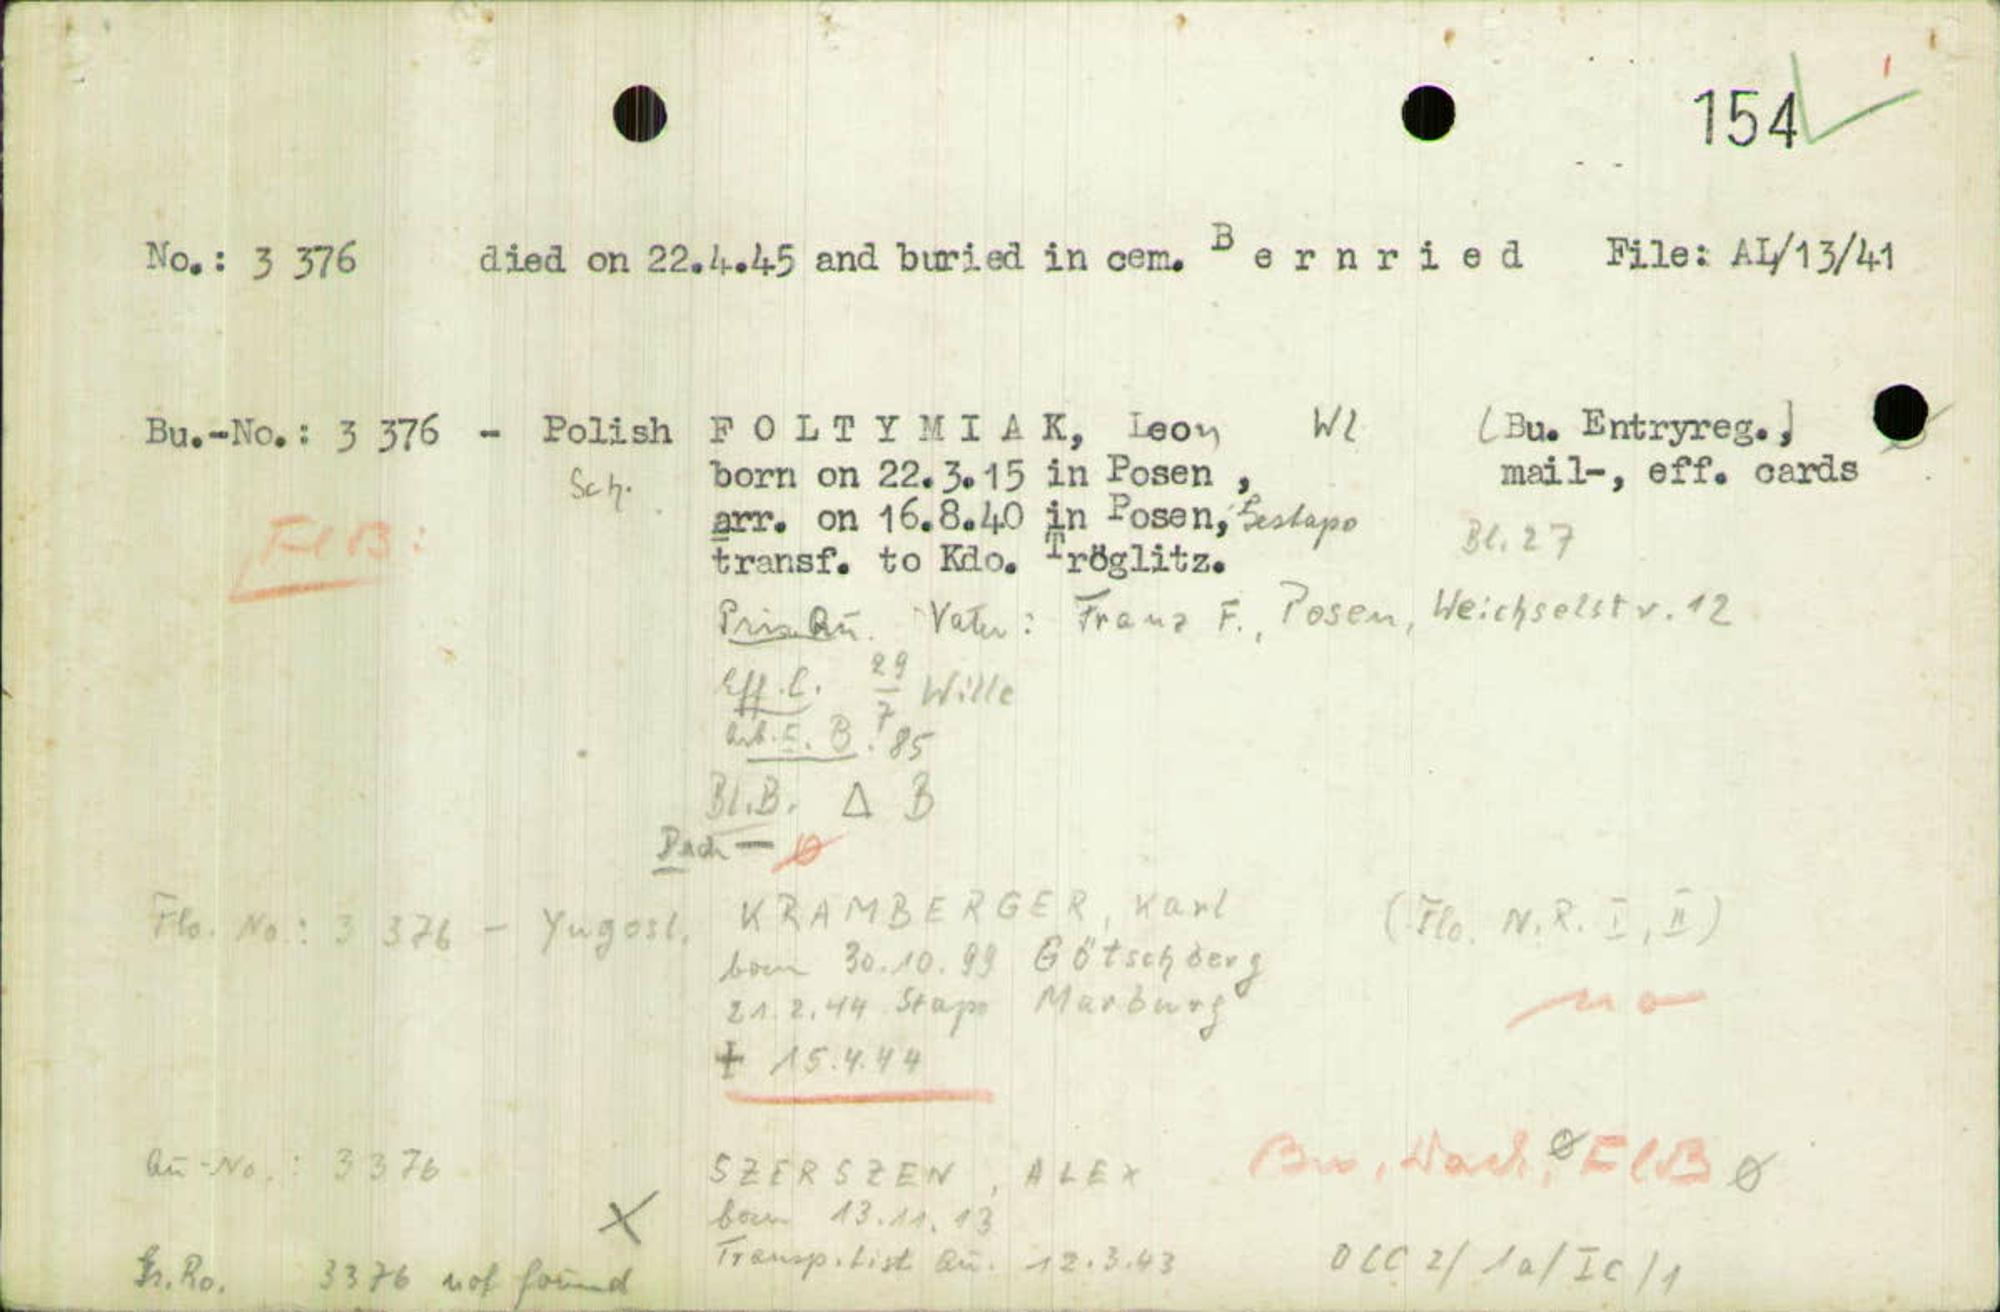 154
No.: 3 376 died on 22.4.45 and buried in cem. B e r n r i e d File: AL/13/41
Bu.-No.: 3 376 - Polish F O L T Y M I A K, Leon Wl (Bu. Entryreg.,)
Sch. born on 22.3.15 in Posen , mail-, eff. cards
FlB: arr. on 16.8.40 in Posen, Gestapo Bl. 27
transf. to Kdo. Tröglitz.
Vater: Franz F., Posen, Weichselstr. 12
Eff. C. 29/7 Wille
E. B. 85
Bl.B. Δ B
Dach — ø
Flo. No.: 3 376 - Yugosl. KRAMBERGER, Karl (Flo. N.R. I, II)
born 30.10.99 Götschberg
21.2.44 Stapo Marburg no
+ 15.4.44
Au-No.: 3376 SZERSZEN, ALEX Bu, Dach, ø FlB ø
X born 13.11.13
Gr.Ro. 3376 not found Transp.list Au. 12.3.43 OCC 2/1a/IC/1